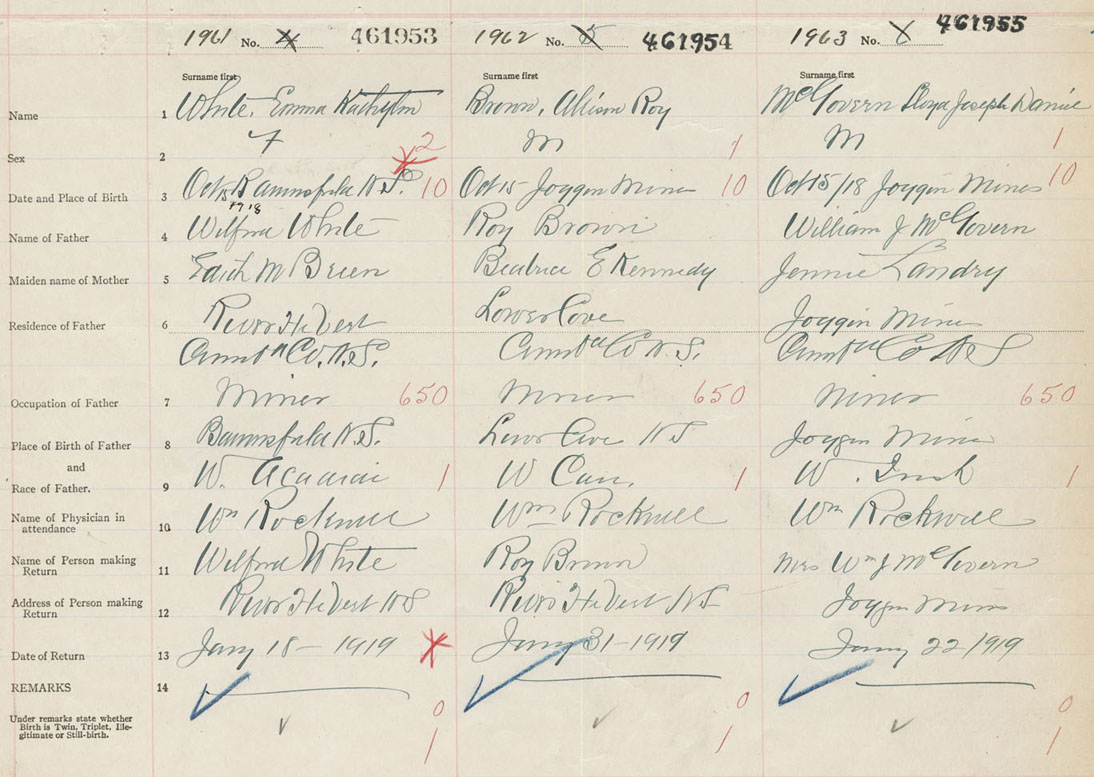 1961 No. 4 461953 1962 No. 5 461954 1963 No. 6 461955
Surname first Surname first Surname first
Name 1 White, Emma Brown, Allison Roy McGovern Lloyd Joseph Daniel
Sex 2 F 2 M 1 M 1
Date and Place of Birth 3 Oct 15 1918 N.S. 10 Oct 15 Joggin Mines 10 Oct 15/18 Joggin Mines 10
Name of Father 4 Wilfred White Roy Brown William J McGovern
Maiden name of Mother 5 Edith M Brien Beatrice E Kennedy Jennie Landry
Residence of Father 6 River Hebert Lower Cove Joggin Mines
Co. N.S. Co N.S. Co N S
Occupation of Father 7 Miner 650 Miner 650 Miner 650
Place of Birth of Father 8 N.S. Lower Cove N S Joggin Mines
and
Race of Father. 9 W. Acadian 1 W Can. 1 W. Irish 1
Name of Physician in
attendance 10 Wm Rockwell Wm Rockwell Wm Rockwell
Name of Person making
Return 11 Wilfred White Roy Brown Mrs Wm J McGovern
Address of Person making
Return 12 River Hebert N S River Hebert N S Joggin Mines
Date of Return 13 Jany 18 - 1919 Jany 31 - 1919 Jany 22 1919
REMARKS 14
0 0 0
Under remarks state whether
Birth is Twin, Triplet, Ille-
gitimate or Still-birth.
1 1 1